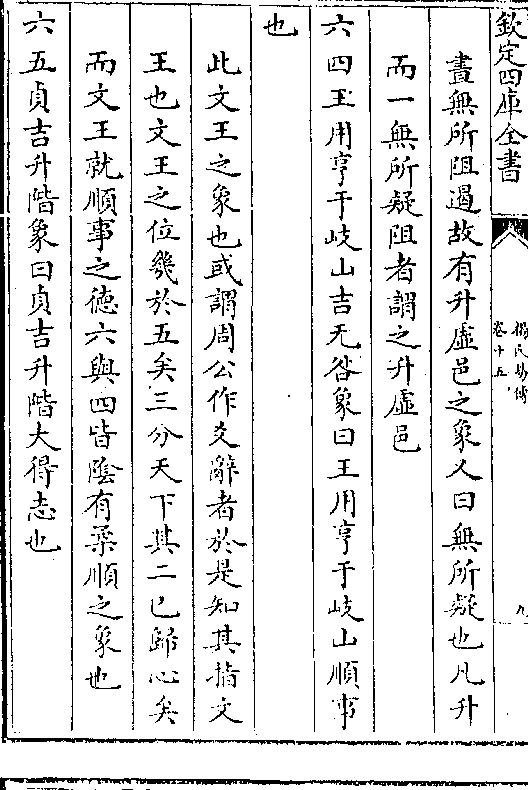 欽定四庫全書
楊氏易傳
卷十五
九
晝無所阻遏故有升虛邑之象又曰無所疑也凡升
而一無所疑阻者謂之升虛邑
六四王用亨于岐山吉无咎象曰王用亨于岐山順事
也
此文王之象也或謂周公作爻辭者於是知其指文
王也文王之位幾於五矣三分天下其二已歸心矣
而文王就順事之德六與四皆陰有柔順之象也
六五貞吉升階象曰貞吉升階大得志也